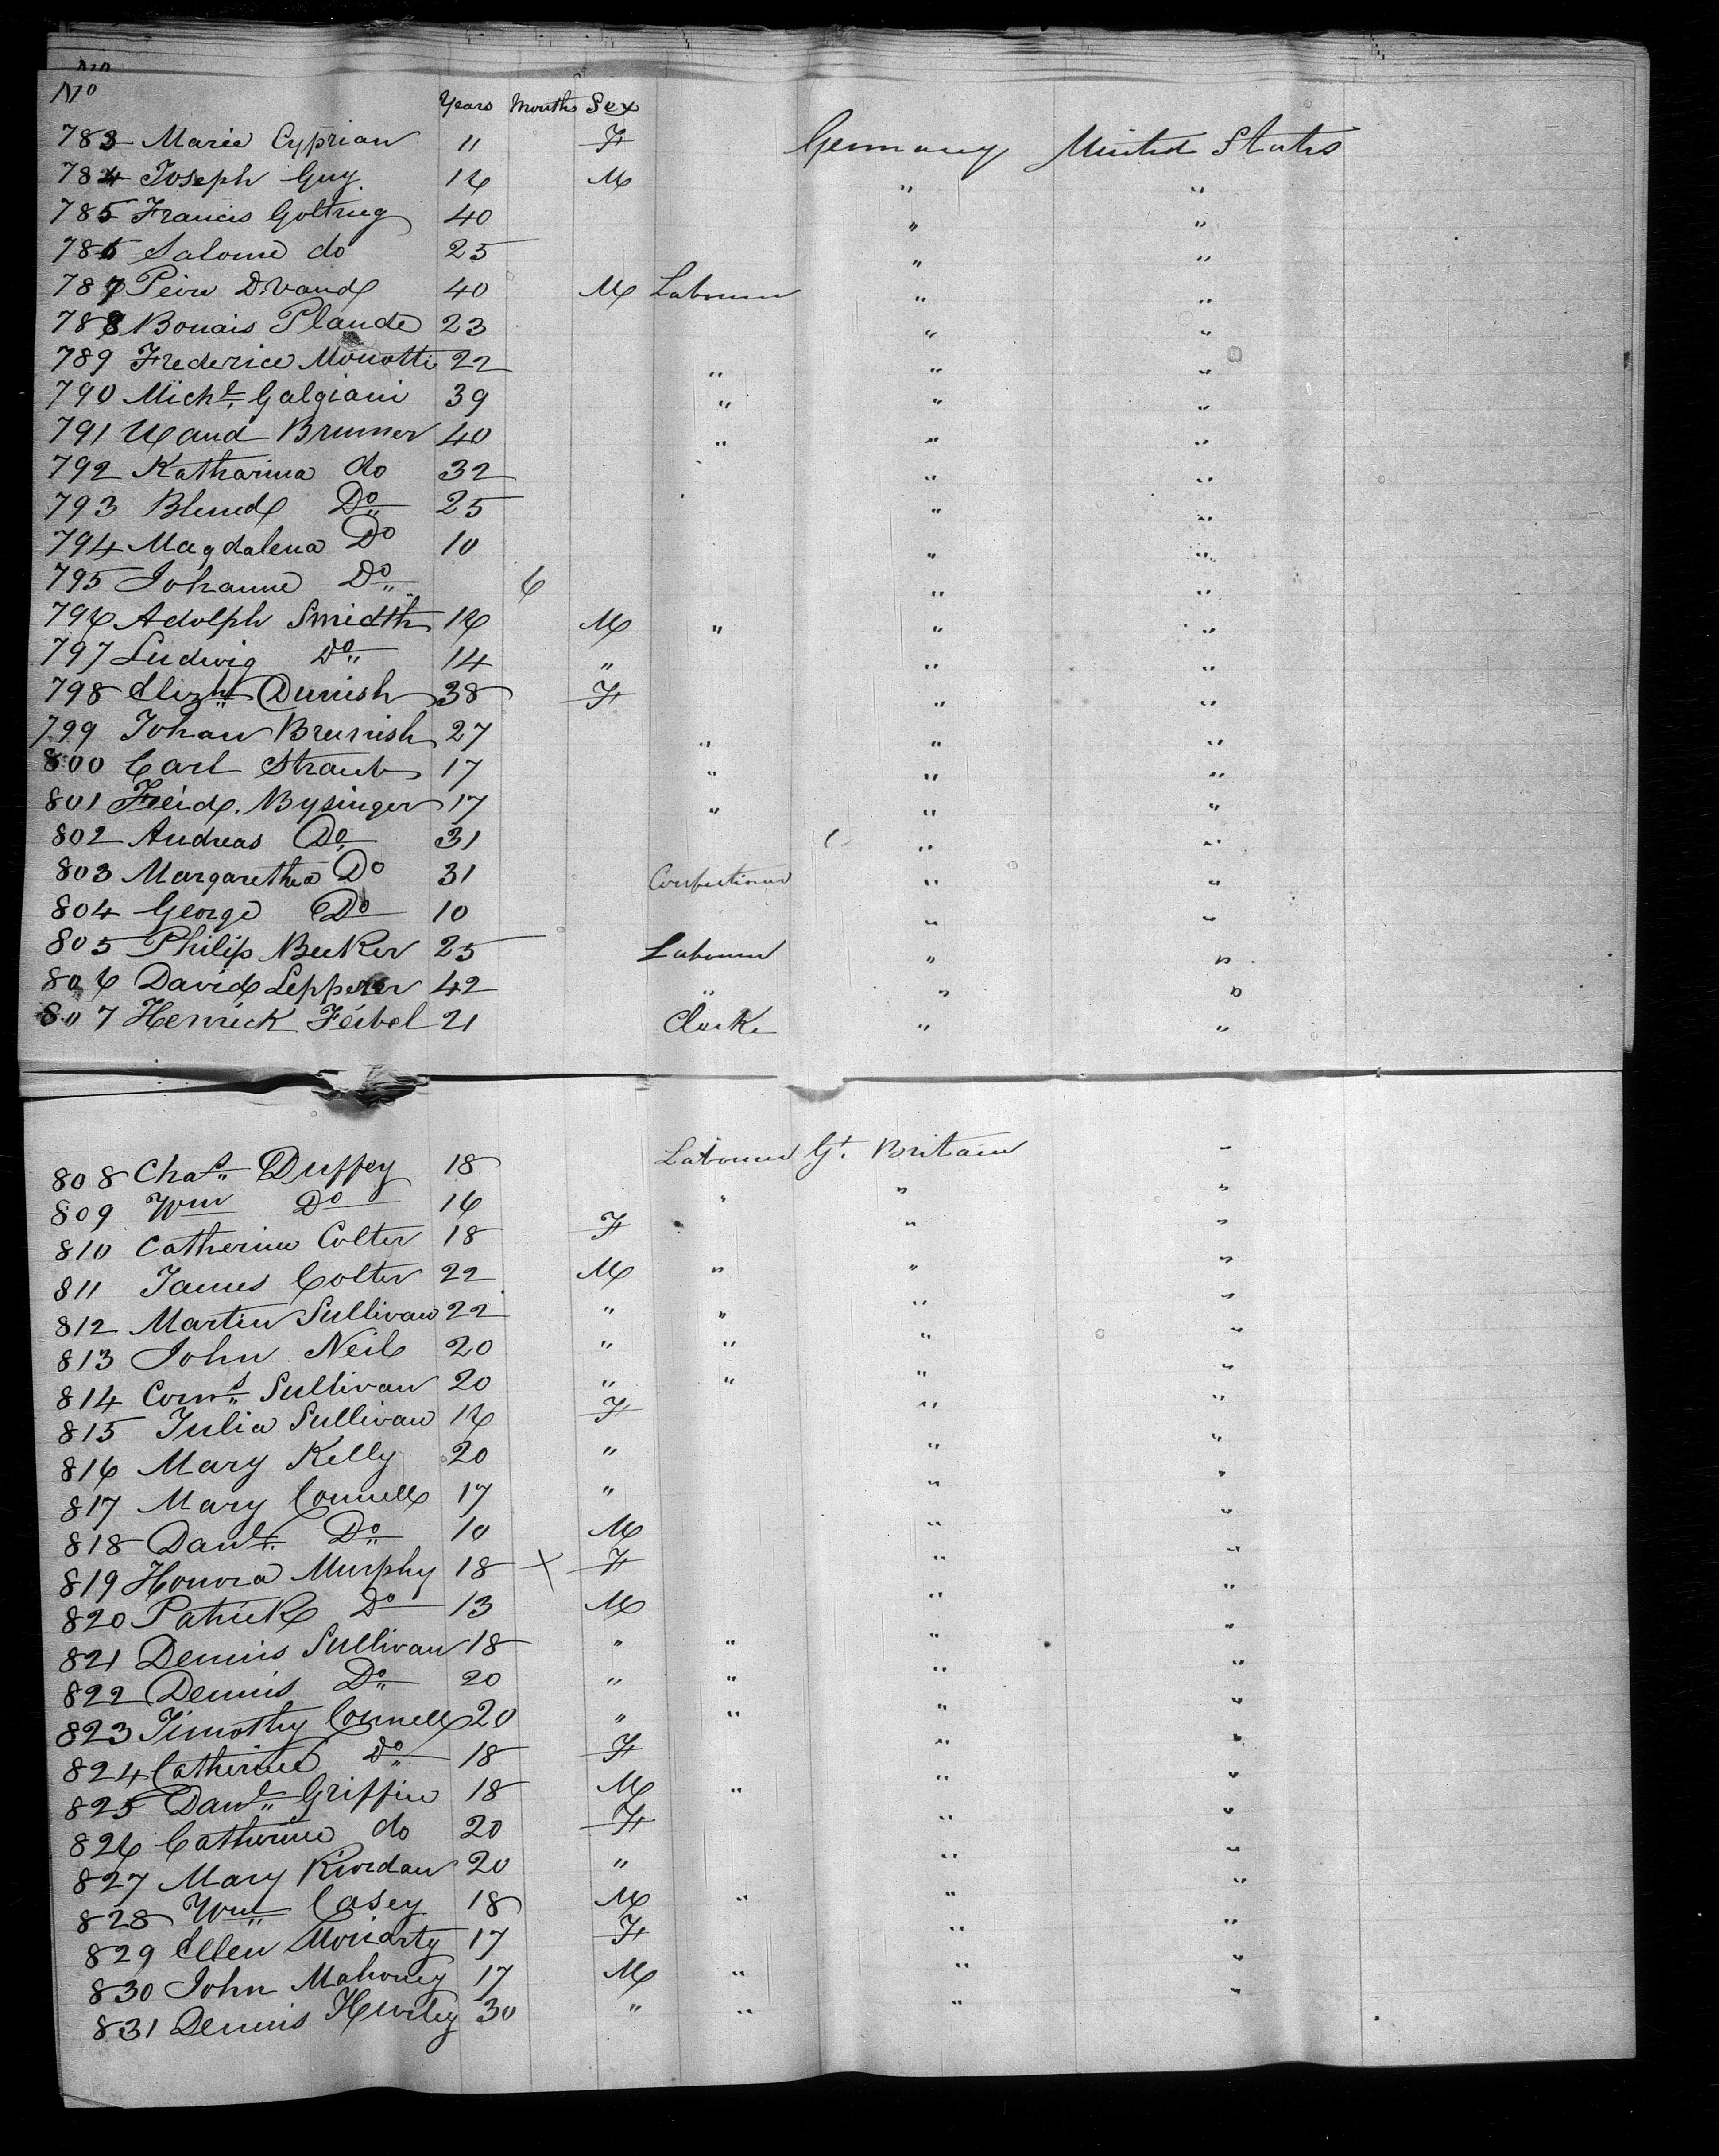 No
No Years Months Sex
783 Marie Cyprian 11 F Germany United States
784 Joseph Guy 16 M " "
785 Francis Goltrieg 40 " "
786 Salome do 25 " "
787 40 M Labourer " "
788 Bonais Plande 23 " "
789 Frederice Monotti 22 " " "
790 Michl. Galgiani 39 " " "
791 Brunner 40 " " "
792 Katharina do 32 " "
793 Do 25 " "
794 Magdalena Do 10 " "
795 Johanne Do 6 " "
796 Adolph Smidth 16 M " " "
797 Ludwig Do 14 " " "
798 Elizh Dunish 38 F " "
799 Johan Brunish 27 " " "
800 Carl Straub 17 " " "
801 Freid. Bysinger 17 " " "
802 Andreas Do 31 " "
803 Margaretha Do 31 Confectioner " "
804 George Do 10 " "
805 Philip Becker 25 Labourer " "
806 David Lepperer 42 " " "
807 Henrick Feibel 21 Clerk " "
808 Chas. Duffey 18 Labourer Gt. Britain "
809 Wm Do 16 " " "
810 Catherine Colter 18 F " "
811 James Colter 22 M " " "
812 Martin Sullivan 22 " " " "
813 John Neil 20 " " " "
814 Corns. Sullivan 20 " " " "
815 Julia Sullivan 16 F " "
816 Mary Kelly 20 " " "
817 Mary Connell 17 " " "
818 Danl. Do 10 M " "
819 Honora Murphy 18 X F " "
820 Patrick Do 13 M " "
821 Dennis Sullivan 18 " " " "
822 Dennis Do 20 " " " "
823 Timothy Connell 20 " " " "
824 Catherine Do 18 F " "
825 Danl. Griffin 18 M " " "
826 Catherine do 20 F " "
827 Mary Riordan 20 " " "
828 Wm Casey 18 M " " "
829 Ellen Moriarty 17 F " "
830 John Mahoney 17 M " " "
831 Dennis Hurley 30 " " " "